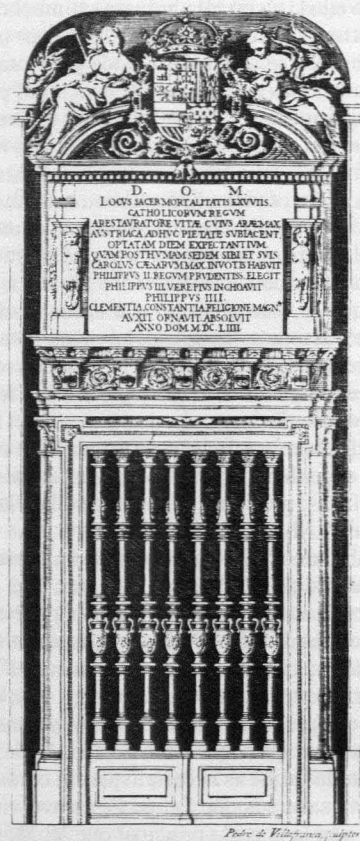 D. O. M.
LOCVS SACER MORTALITATIS EXVVIIS.
CATHOLICORVM REGVM
ARESTAVRATORE VITÆ CVIVS ARÆ MAX.
AVSTRIACA ADHVC PIETATE SVBIACENT.
OPTATAM DIEM EXPECTANTIVM.
QVAM POSTHVMAM SEDEM SIBI ET SVIS
CAROLVS CÆSARVM MAX. INVOTIS HABVIT
PHILIPPVS II. REGVM PRVDENTIS. ELEGIT
PHILIPPVS III. VERE PIVS INCHOAVIT
PHILIPPVS IIII.
CLEMENTIA, CONSTANTIA, RELIGIONE MAGN.
AVXIT ORNAVIT. ABSOLVIT
ANNO DOM. M. DC. LIIII
Pedro de Villafranca, sculptor